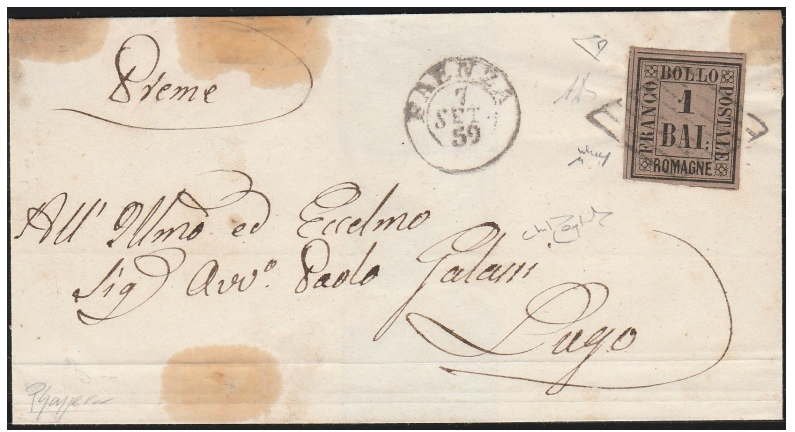 Preme
FAENZA
7
SET
59
BOLLO
FRANCO
1
BAI.
POSTALE
ROMAGNE
All' Illmo ed Eccelmo
Sig Avvo. Paolo Galassi
Lugo